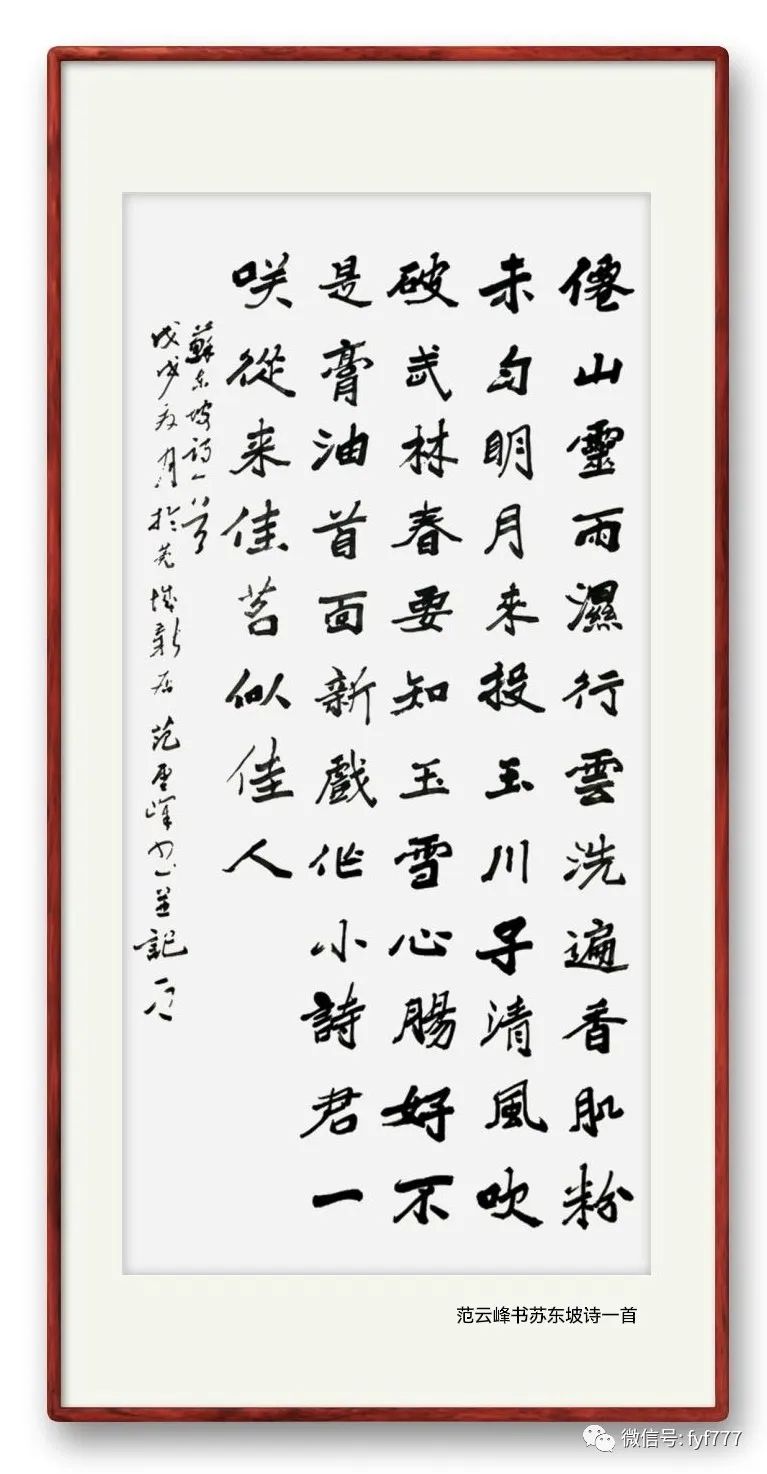 僊山靈雨濕行雲洗遍香肌粉
未勻明月來投玉川子清風吹
破武林春要知玉雪心腸好不
是膏油首面新戲作小詩君一
咲從来佳茗似佳人
蘇东坡詩一首
戊戌月於芜城新居范雲峰书並記
范云峰书苏东坡诗一首
微信号: fyf777